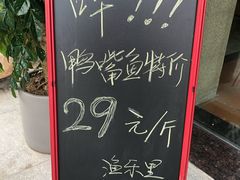 鸭嘴鱼特价
29元/斤
渔乐里